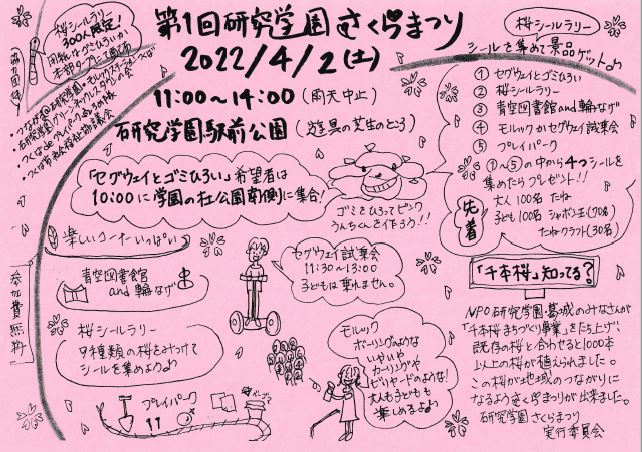 第1回研究学園さくらまつり
2022/4/2(土)
11:00～14:00(雨天中止)
研究学園駅前公園(遊具の芝生のところ)
桜シールラリー
300人限定!
協力団体
つくば市社会福祉協議会
「セグウェイとゴミひろい」希望者は
10:00に学園の杜公園南側に集合!
ゴミをひろってピンク
うんちくんを作ろう!!
桜シールラリー
シールを集めて景品ゲット♪
① セグウェイとゴミひろい
② 桜シールラリー
③ 青空図書館and輪なげ
④ モルックかセグウェイ試乗会
⑤ プレイパーク
①～⑤の中から4つシールを
集めたらプレゼント!!
先着
大人 100名 たね
子ども100名 シャボン玉(70名)
たねクラフト(30名)
楽しいコーナーいっぱい
参加費無料
青空図書館
and輪なげ
桜シールラリー
9種類の桜をみつけて
シールを集めよう♪
プレイパーク
セグウェイ試乗会
11:30～13:00
子どもは乗れません。
モルック
ボーリングのような
いやいや
カーリングや
ビリヤードのような!
大人も子どもも
楽しめるよ♪
「千本桜」知ってる?
NPO研究学園・葛城のみなさんが
「千本桜まちづくり事業」をたち上げ
既存の桜と合わせると1000本
以上の桜が植えられました。
この桜が地域のつながりに
なるようさくらまつりが出来ました。
研究学園さくらまつり
実行委員会